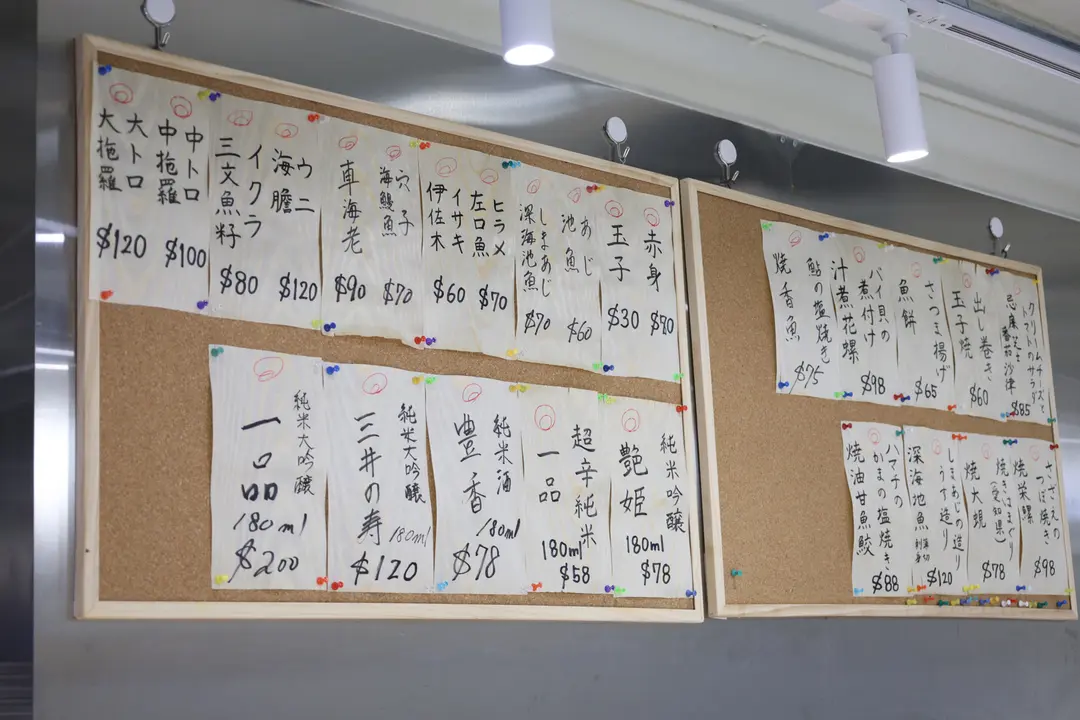 赤身
$70
玉子
$30
あじ
池魚
$60
しまあじ
深海池魚
$70
ヒラメ
左口魚
$70
イサキ
伊佐木
$60
穴子
海鰻魚
$70
車海老
$90
ウニ
海膽
$120
イクラ
三文魚籽
$80
中トロ
中拖羅
$100
大トロ
大拖羅
$120
純米吟醸
艶姫
180ml
$78
超辛純米
一品
180ml
$58
純米酒
豊香
180ml
$78
純米大吟醸
三井の寿
180ml
$120
純米大吟醸
一品
180ml
$200
クリームチーズと
トマトのサラダ
忌廉芝士
番茄沙律
$85
出し巻き
玉子焼
$60
さつま揚げ
魚餅
$65
バイ貝の
煮付け
汁煮花螺
$98
鮎の塩焼き
焼香魚
$75
さざえの
つぼ焼き
焼栄螺
$98
焼きはまぐり
(愛知県)
焼大蜆
$78
しまあじの造り
うす造り
深海地魚
薄切
刺身
$120
ハマチの
かまの塩焼き
焼油甘魚鮫
$88